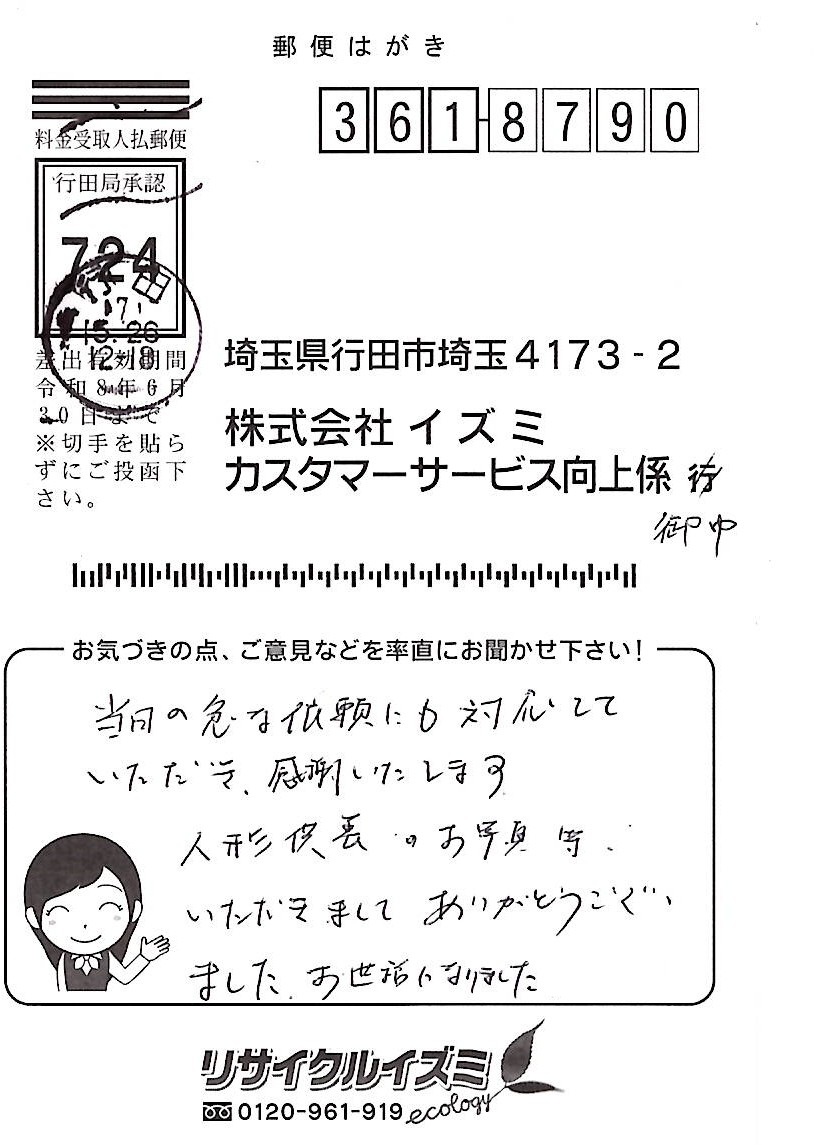 郵便はがき
361-8790
料金受取人払郵便
行田局承認
724
差出有効期間
令和8年6月
30日まで
※切手を貼ら
ずにご投函下
さい。
埼玉県行田市埼玉4173-2
株式会社イズミ
カスタマーサービス向上係 行
御中
お気づきの点、ご意見などを率直にお聞かせ下さい!
当日の急な依頼にも対応して
いただき、感謝いたします
人形供養のお写真等、
いただきまして ありがとうござい
ました。お世話になりました
リサイクルイズミ
0120-961-919 ecology